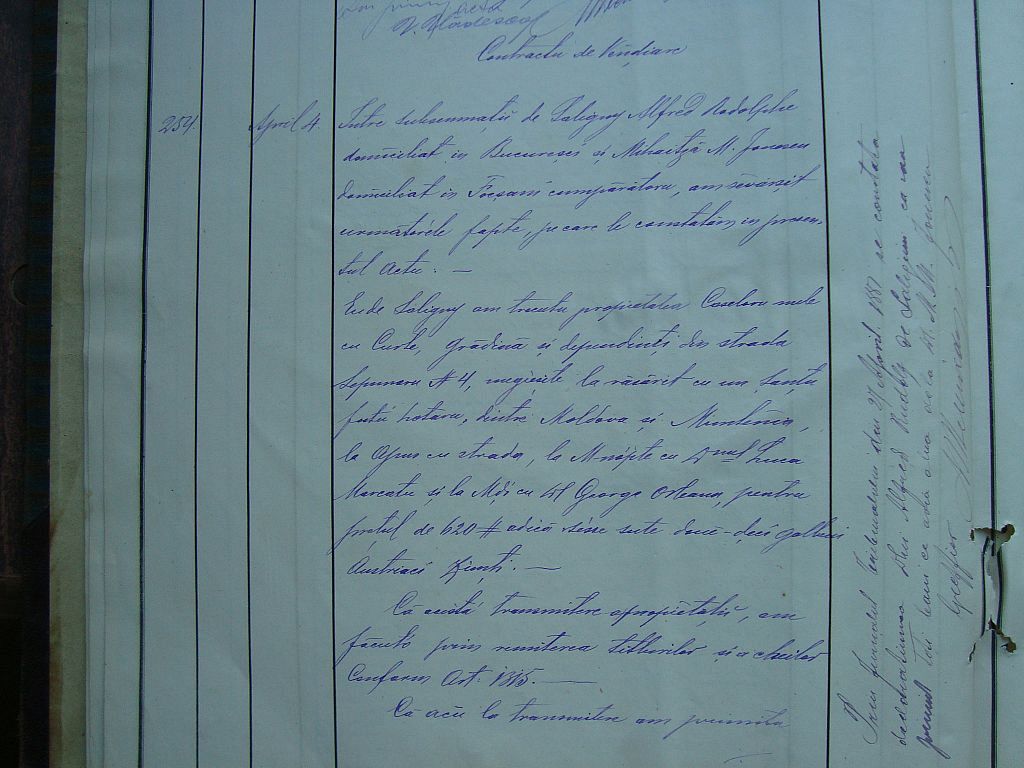 Contractu de Vindiare
254.
April 4.
Intre subsemnații de Saligny Alfred Rodolphe
domiciliat in București și Mihaitză M. Jonescu
domiciliat in Focșani cumpărătoru, am săvârșit
urmatórele fapte, pe care le constatăm in presen-
tul Actu. —
Eu de Saligny am trecutu proprietatea Caseloru mele
cu Curte, grădină și dependinți din strada
No 4, la răsărit cu un șanțu
hotaru, dintre Moldova și Muntenia,
la Apus cu strada, la Mnópte cu Luca
Marcatu și la Mdi cu George Orleanu, pentru
prețul de 620 # adică sése sute doue-deci galbeni
Austriaci —
Că acéstă transmitere a propietăței, am
făcut'o prin remiterea titlurilor și a cheilor
Conform Art. 1315. —
Că acu la transmitere am primitu
Prin Jurnalul Tribunalului din 27 April 1887 se constată
declarațiunea Dlui Alfred Rudolf de Saligni că au
primit toti banii ce adia a lua de la Dl. M. M. Jonescu
Greffier